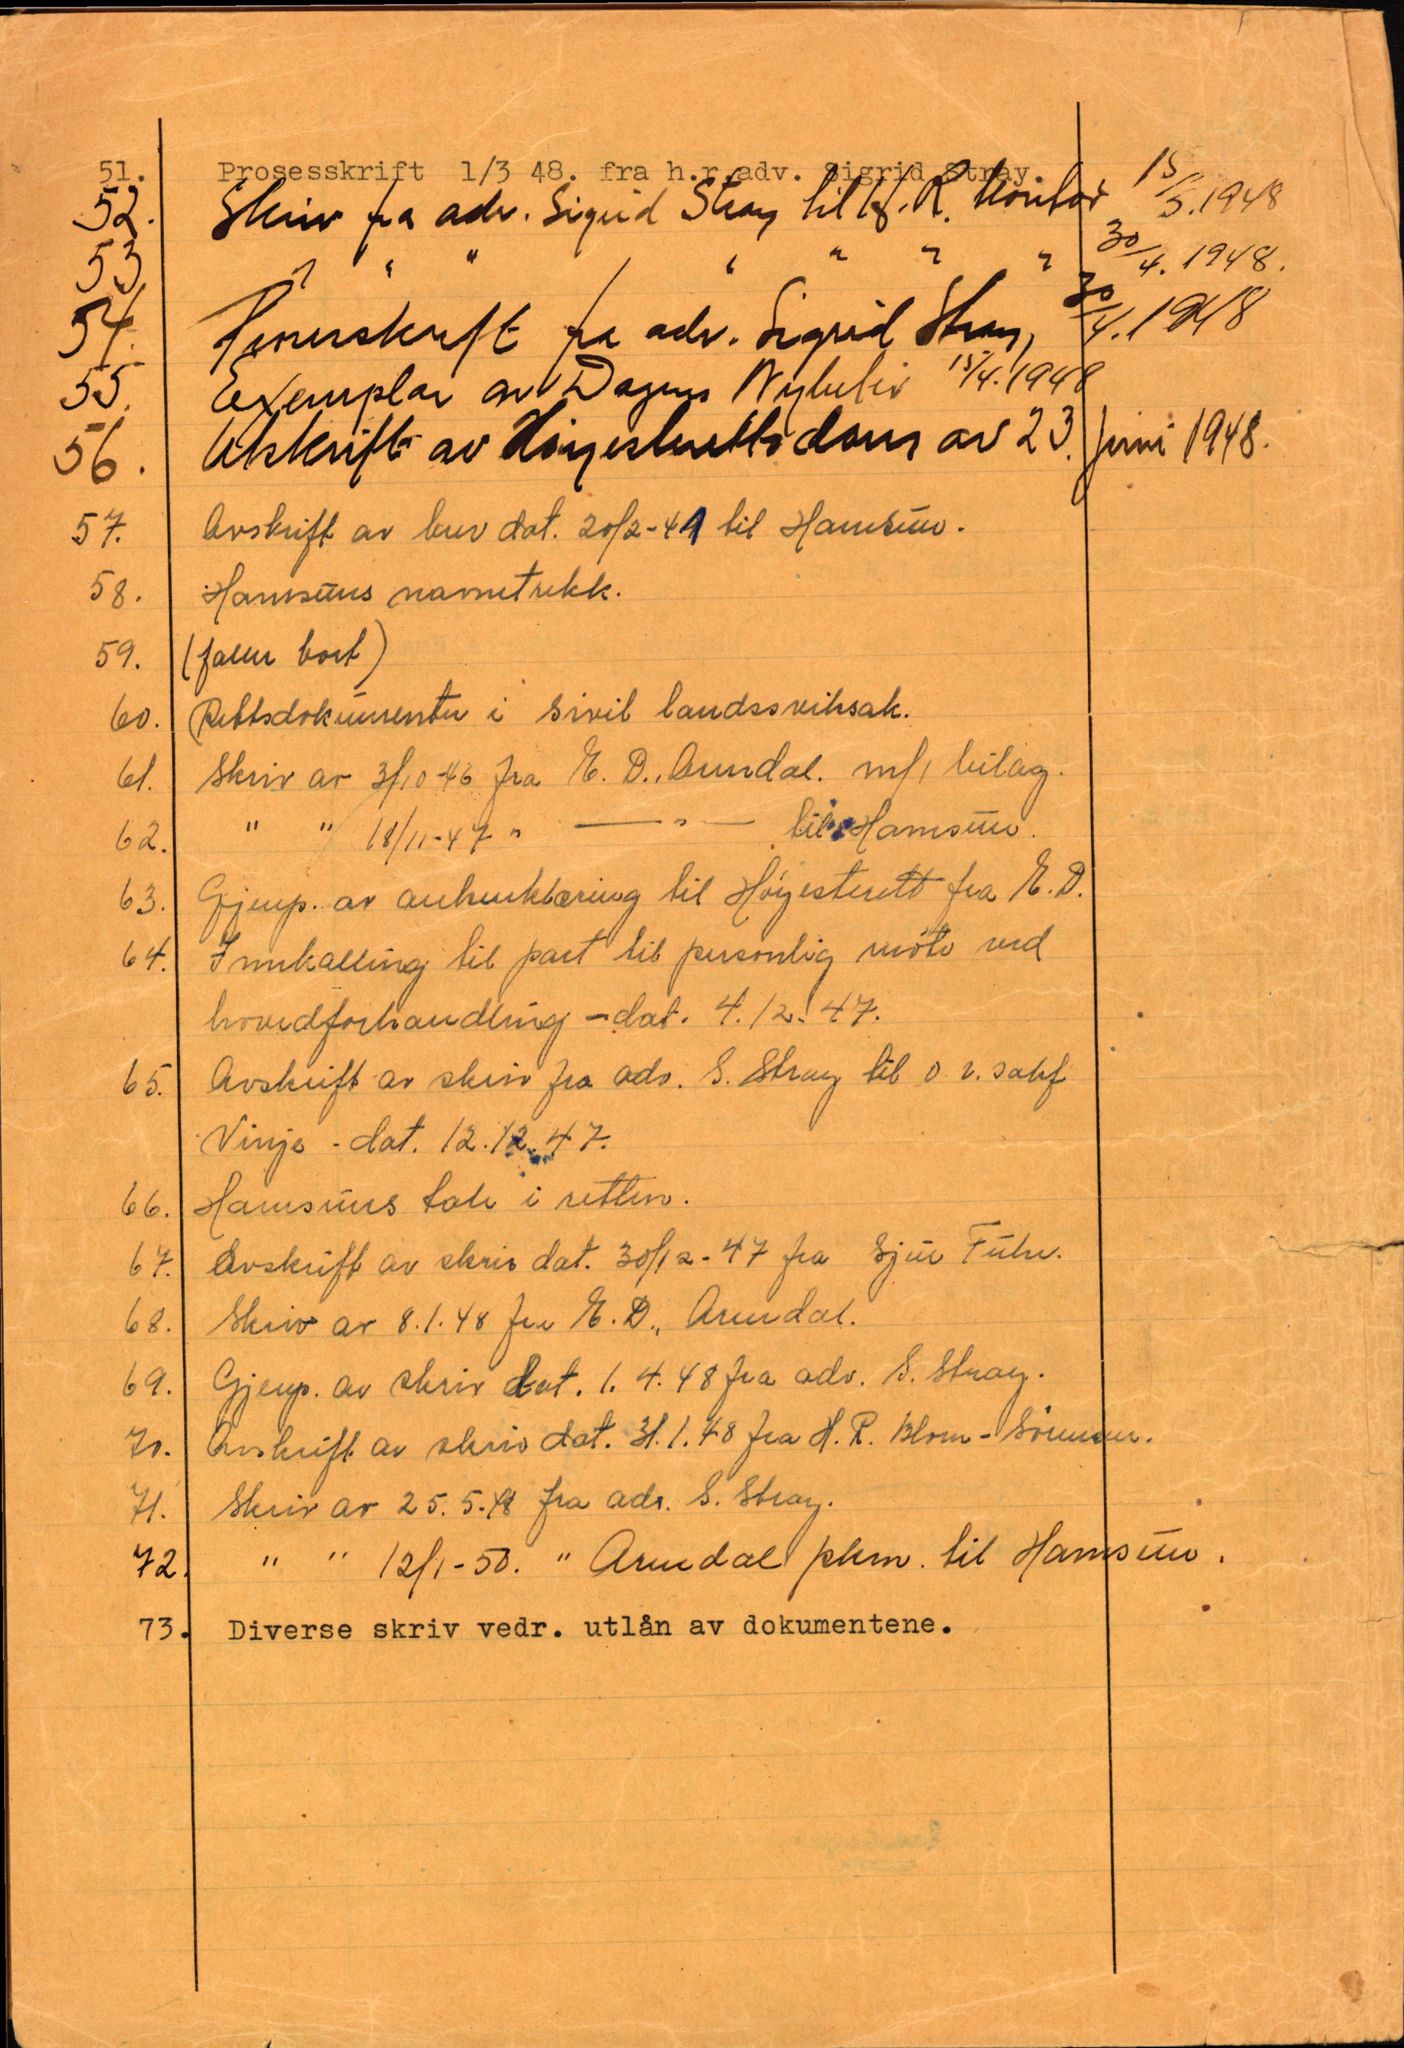 51. Prosesskrift 1/3 48. fra h.r.adv. Sigrid Stray.
52. Skriv fra adv. Sigrid Stray til H. R. Kontor 15/5. 1948
53 " " " " " " " 30/4. 1948.
54. fra adv. Sigrid Stray, 30/4. 1948
55. Exemplar av Dagens Nyheter 15/4. 1948
56. Utskrift av Høyesterettsdom av 23. juni 1948.
57. Avskrift av brev dat. 20/2-41 til Hamsun.
58. Hamsuns navnetrekk.
59. (faller bort)
60. Rettsdokumenter i sivil landssviksak.
61. Skriv av 3/10-46 fra E. D., Arendal. m/1 bilag.
62. " " 18/11-47 " —— " —— til Hamsun.
63. Gjenp. av ankeerklæring til Høyesterett fra E. D.
64. Innkalling til part til personlig møte ved
hovedforhandling - dat. 4.12.47.
65. Avskrift av skriv fra adv. S. Stray til o. r. sakf
Vinje - dat. 12.12.47.
66. Hamsuns tale i retten.
67. Avskrift av skriv dat. 30/12-47 fra Sjur Fuhr.
68. Skriv av 8.1.48 fra E. D., Arendal.
69. Gjenp. av skriv dat. 1. 4. 48 fra adv. S. Stray.
70. Avskrift av skriv dat. 31.1.48 fra H. R. Blom-Sörensen.
71. Skriv av 25. 5. 48 fra adv. S. Stray.
72. " " 12/1-50. " Arendal pkm. til Hamsun.
73. Diverse skriv vedr. utlån av dokumentene.